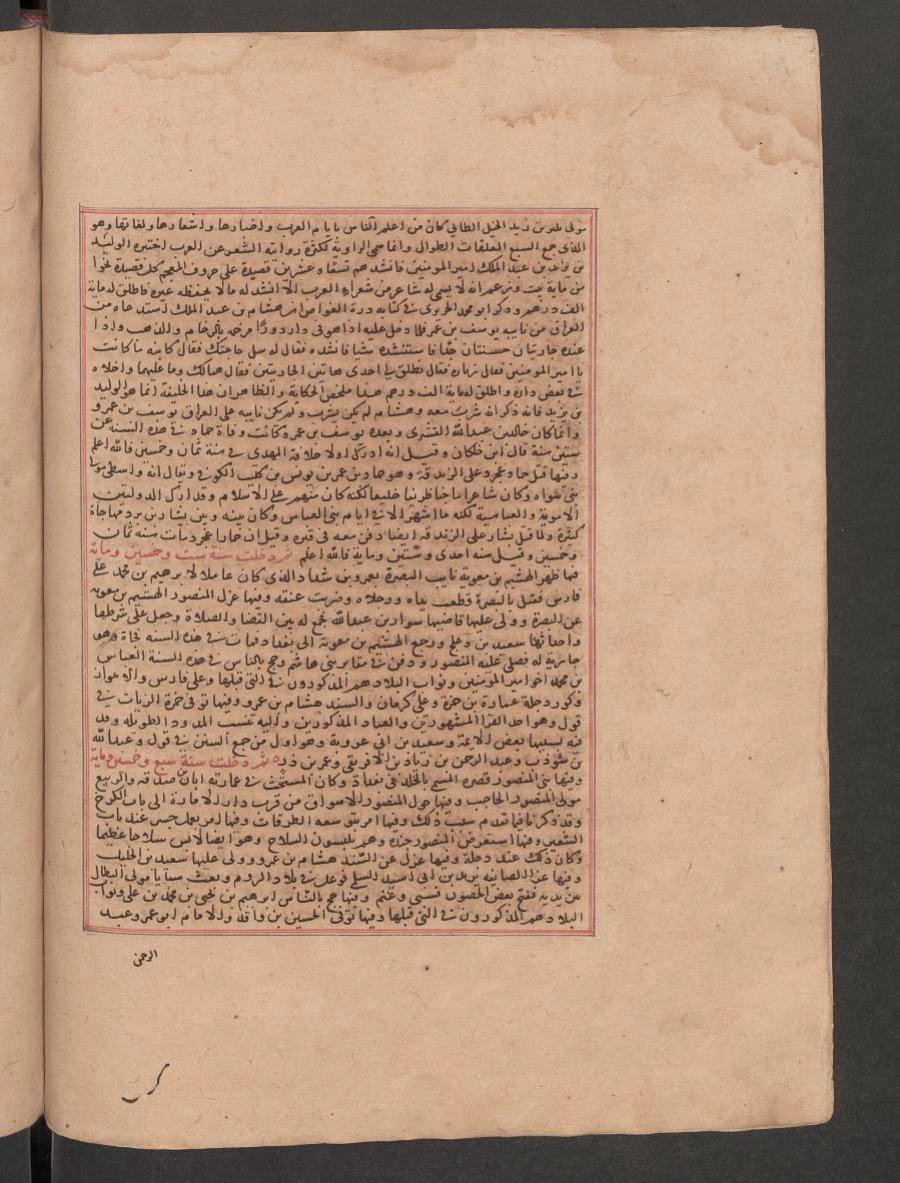 مولى بكر بن زيد الخيل الطائي كان من اعلم الناس بايام العرب واخبارها واشعارها ولغاتها وهو
الذي جمع السبع المعلقات الطوال وانما سمى الراوية لكثرة روايته الشعر عن العرب اختبره الوليد
بن يزيد بن عبد الملك امير المومنين فانشدهم تسعا وعشرين قصيدة على حروف المعجم كل قصيدة نحوا
من ماية بيت وزعم انه لا يسمى له شاعر من شعراء العرب الا انشد له ما لا يحفظه غيره فاطلق له ماية
الف درهم وذكر ابو محمد الحريري في كتابه درة الغواص ان هشام بن عبد الملك استدعاه من
العراق من نايبه يوسف بن عمر فلما دخل عليه اذا هو في دار قوراء مرخمة بالرخام والذهب واذا
عنده جاريتان حسنتان جدا فاستنشده شيا فانشده فقال له سل حاجتك فقال كاينة ما كانت
يا امير المومنين فقال نعم فقال تطلق لي احدى هاتين الجاريتين فقال هما لك وما عليهما واخلاه
في بعض داره واطلق له ماية الف درهم هذا ملخص الحكاية والظاهر ان هذا الخليفة انما هو الوليد
بن يزيد فانه ذكر انه شرب معه وهشام لم يكن يشرب ولم يكن نايبه على العراق يوسف بن عمرو
وانما كان خالد بن عبد الله القسري وبعده يوسف بن عمر وكانت وفاة حماد في هذه السنة عن
ستين سنة قال ابن خلكان وقيل انه ادرك اول خلافة المهدي في سنة ثمان وخمسين فالله اعلم
وفيها قتل حماد عجرد على الزندقة وهو حماد بن عمر بن يونس بن كليب الكوفي ويقال انه واسطي مولى
بني سواه وكان شاعرا ماجنا ظريفا خليعا لكنه كان متهم على الاسلام وقد ادرك الدولتين
الاموية والعباسية لكنه ما اشتهر الا في ايام بني العباس وكان بينه وبين بشار بن برد مهاجاة
كثيرة ولما قتل بشار على الزندقة ايضا دفن معه في قبره وقيل ان حمادا عجرد مات سنة ثمان
وخمسين وقيل سنه احدى وستين وماية فالله اعلم ثم دخلت سنة ست وخمسين وماية
فيها ظهر الهيثم بن معوية نايب البصرة بعمرو بن شداد الذي كان عاملا لابرهيم بن محمد على
فارس فقتل بالبصرة قطعت يداه ورجلاه وضربت عنقه وفيها عزل المنصور الهيثم بن معوية
عن البصرة وولى عليها قاضيها سوار بن عبد الله فجمع له بين القضا والصلاة وجعل على شرطها
واحداثها سعيد بن دعلج ورجع الهيثم بن معوية الى بغداد فمات في هذه السنه فجاة وهو
جارية له فصلى عليه المنصور ودفن في مقابر بني هاشم وحج بالناس في هذه السنة العباس
بن محمد اخو امير المومنين ونواب البلاد هم المذكورون في التي قبلها وعلى فارس والاهواز
وكور دجلة عمارة بن حمزة وعلى كرمان والسند هشام بن عمرو وفيها توفي حمزة الزيات في
قول وهو احد القرا المشهورين والعباد المذكورين واليه تنسب المدود الطويله وقد
فيه بسببها بعض الايمة وسعيد بن ابي عروبة وهو اول من جمع السنن في قول وعبد الله
بن شوذب وعبد الرحمن بن زياد بن الافريقي وعمر بن ذر ثم دخلت سنة سبع وخمسين وماية
وفيها بنى المنصور قصره المسمى بالخلد في بغداد وكان المستحث في عمارته ابان بن صدقه والربيع
مولى المنصور الحاجب وفيها حول المنصور الاسواق من قرب دار الامارة الى باب الكرخ
وقد ذكرنا فيما تقدم سبب ذلك وفيها امر بتوسعه الطرقات وفيها امر بعمل جسر عند باب
الشعير وفيها استعرض المنصور جنده وهم يلبسون السلاح وهو ايضا لابس سلاحا عظيما
وكان ذلك عند دجلة وفيها عزل عن السند هشام بن عمرو وولى عليها سعيد بن الخليل
وفيها غزا الصائفة يزيد بن ابي اسيد السلمي فوغل في بلاد الروم وبعث سنانا مولى البطال
بين يديه ففتح بعض الحصون فسبى وغنم وفيها حج بالناس ابرهيم بن يحيى بن محمد بن علي ونواب
البلاد هم المذكورون في التي قبلها وفيها توفي الحسين بن واقد والامام ابو عمرو عبد
الرحمن